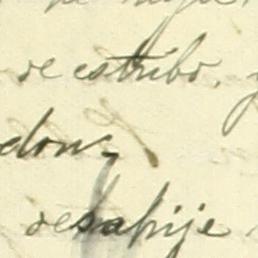 de estribo, y
don,
desahije